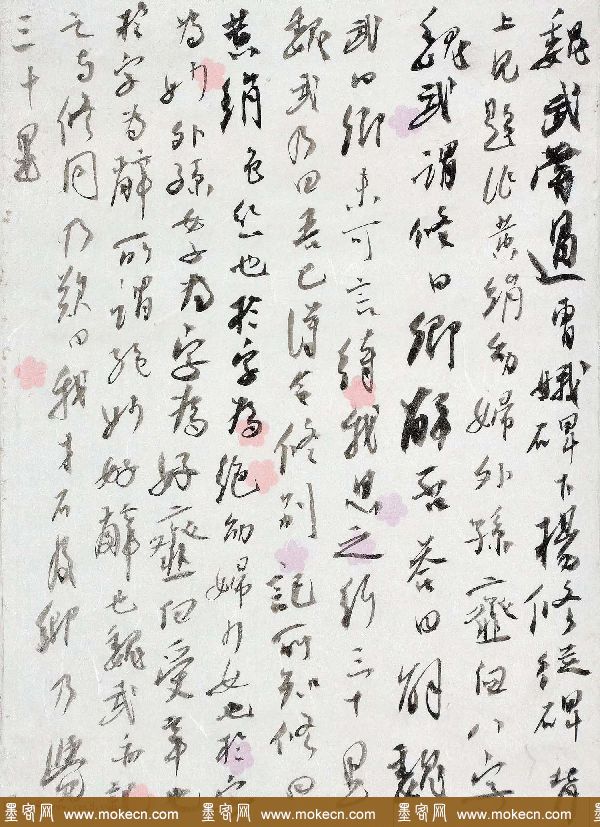 魏武嘗過曹娥碑下楊修從碑背
上見題作黃絹幼婦外孫齏臼八字
魏武謂修曰卿解否答曰解魏
武曰卿未可言待我思之行三十里
魏武乃曰吾已得令修別記所知修曰
黃絹色絲也於字為絕幼婦少女也於字
為妙外孫女子為字為好齏臼受辛也
於字為辭所謂絕妙好辭也魏武亦記
之与修同乃歎曰我才不及卿乃覺
三十里
墨客网 www.mokecn.com 墨客网 www.mokecn.com 墨客网 www.mokecn.com